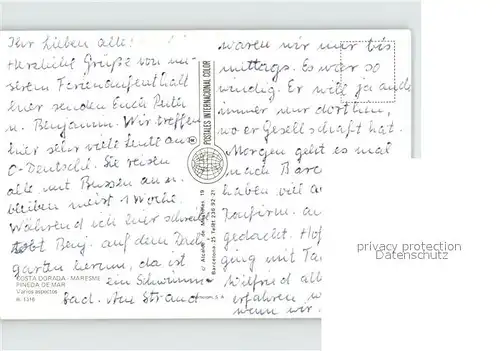 Ihr Lieben alle!
Herzliche Grüße von un-
serem Ferienaufenthalt
hier senden Euch Ruth
u. Benjamin. Wir treffen
hier sehr viele Leute aus
O-Deutschl. Sie reisen
alle mit Bussen an u.
bleiben meist 1 Woche.
Während ich hier schreibe
tobt Benj. auf dem Dach
garten herum, da ist
ein Schwimm
bad. Am Strand
waren wir nur bis
mittags. Es war so
windig. Er will ja auch
immer nur dorthin,
wo er Gesellschaft hat.
Morgen geht es mal
nach Barc
haben viel a
Konfirm. a
gedacht. Hof
ging mit Ta
Wilfried all
erfahren w
wenn wir
POSTALES INTERNACIONAL COLOR
c/ Alcalde de Móstoles 19
Barcelona-25 Telf. 236 92 21
COSTA DORADA - MARESME
PINEDA DE MAR
Varios aspectos
privacy protection
Datenschutz